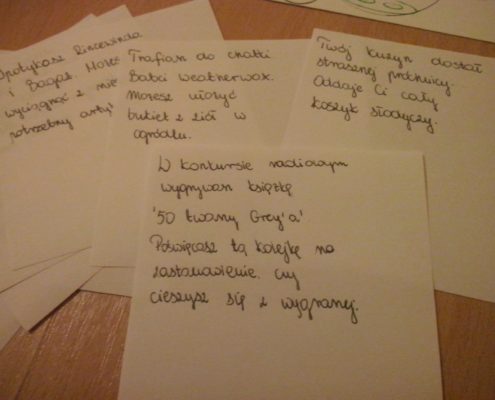 Spotykasz Rincewinda
i Bagaż. Może
wyciągnąć z nie
potrzebny arty
Trafiasz do chatki
Babci Weatherwax.
Możesz ułożyć
bukiet z ziół w
ogródku.
Twój kuzyn dostał
strasznej próchnicy.
Oddaje Ci cały
koszyk słodyczy.
W konkursie radiowym
wygrywasz książkę
'50 twarzy Grey'a'.
Poświęcasz tą kolejkę na
zastanowienie, czy
cieszysz się z wygranej.